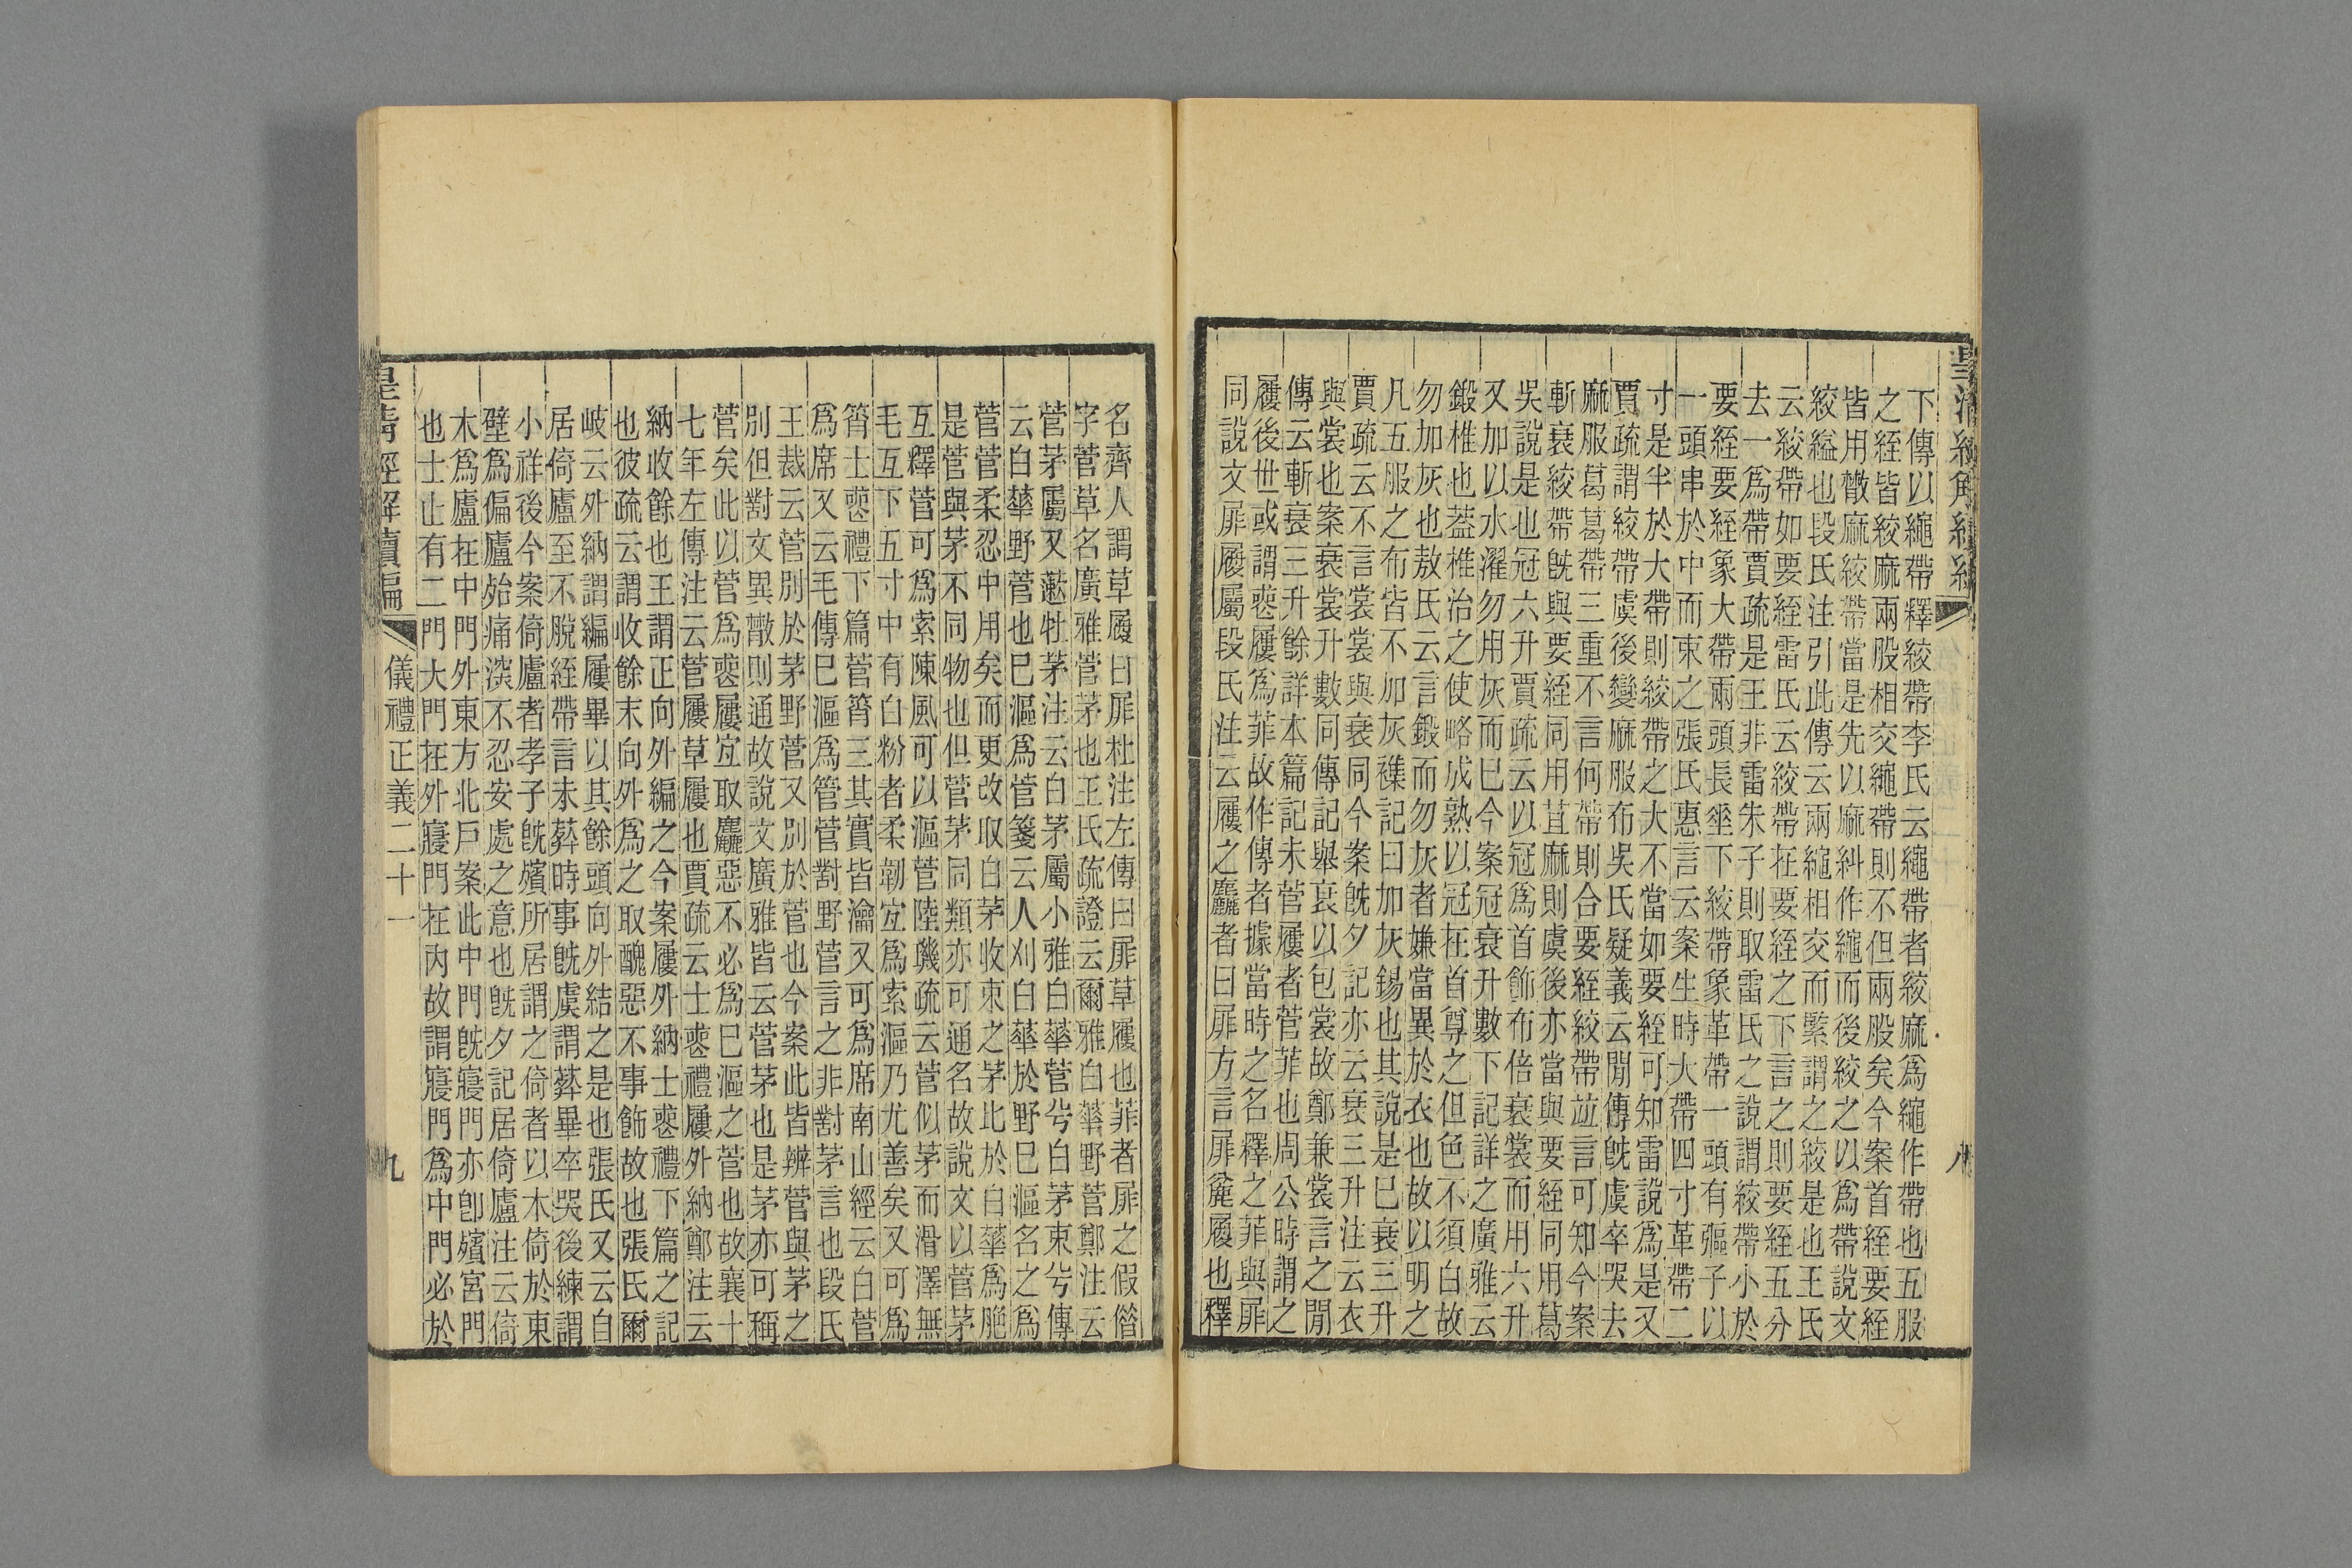 下傳以繩帶釋絞帶李氏云繩帶者絞麻爲繩作帶也五服
之絰皆絞麻兩股相交繩帶則不但兩股矣今案首絰要絰
皆用㪚麻絞帶當是先以麻糾作繩而後絞之以爲帶說文
絞縊也段氏注引此傳云兩繩相交而緊謂之絞是也王氏
云絞帶如要絰雷氏云絞帶在要絰之下言之則要絰五分
去一爲帶賈疏是王非雷朱子則取雷氏之說謂絞帶小於
要絰要絰象大帶兩頭長垂下絞帶象革帶一頭有彄子以
一頭串於中而束之張氏惠言云案生時大帶四寸革帶二
寸是半於大帶則絞帶之大不當如要絰可知雷說爲是又
賈疏謂絞帶虞後變麻服布吳氏疑義云閒傳旣虞卒哭去
麻服葛葛帶三重不言何帶則合要絰絞帶竝言可知今案
斬衰絞帶旣與要絰同用苴麻則虞後亦當與要絰同用葛
吳說是也冠六升賈疏云以冠爲首飾布倍衰裳而用六升
又加以水濯勿用灰而已今案冠衰升數下記詳之廣雅云
鍛椎也蓋椎治之使略成熟以冠在首尊之但色不須白故
勿加灰也敖氏云言鍛而勿灰者嫌當異於衣也故以明之
凡五服之布皆不加灰襍記曰加灰錫也其說是巳衰三升
賈疏云不言裳裳與衰同今案旣夕記亦云衰三升注云衣
與裳也案衰裳升數同傳記舉衰以包裳故鄭兼裳言之閒
傳云斬衰三升餘詳本篇記未菅屨者菅菲也周公時謂之
屨後世或謂喪屨爲菲故作傳者據當時之名釋之菲與屝
同說文屝履屬段氏注云履之麤者曰屝方言屝麤履也釋
名齊人謂草履曰屝杜注左傳曰屝草屨也菲者屝之假借
字菅草名廣雅菅茅也王氏疏證云爾雅白華野菅鄭注云
菅茅屬又藗牡茅注云白茅屬小雅白華菅兮白茅束兮傳
云白華野菅也巳漚爲菅箋云人刈白華於野巳漚名之爲
菅菅柔忍中用矣而更改取白茅收束之茅比於白華爲脆
是菅與茅不同物也但菅茅同類亦可通名故說文以菅茅
互釋菅可爲索陳風可以漚菅陸璣疏云菅似茅而滑澤無
毛互下五寸中有白粉者柔韌宜爲索漚乃尤善矣又可爲
筲士喪禮下篇菅筲三其實皆瀹又可爲席南山經云白菅
爲席又云毛傳巳漚爲管菅對野菅言之非對茅言也段氏
王裁云菅別於茅野菅又別於菅也今案此皆辨菅與茅之
別但對文異㪚則通故說文廣雅皆云菅茅也是茅亦可稱
菅矣此以菅爲喪屨宜取麤惡不必爲巳漚之菅也故襄十
七年左傳注云菅屨草屨也賈疏云士喪禮屨外納鄭注云
納收餘也王謂正向外編之今案屨外納士喪禮下篇之記
也彼疏云謂收餘末向外爲之取醜惡不事飾故也張氏爾
岐云外納謂編屨畢以其餘頭向外結之是也張氏又云自
居倚廬至不脫絰帶言未葬時事旣虞謂葬畢卒哭後練謂
小祥後今案倚廬者孝子旣殯所居謂之倚者以木倚於東
壁爲偏廬殆痛深不忍安處之意也旣夕記居倚廬注云倚
木爲廬在中門外東方北戶案此中門旣寢門亦卽殯宮門
也士止有二門大門在外寢門在內故謂寢門爲中門必於
皇淸經解續編
儀禮正義二十一
八
九